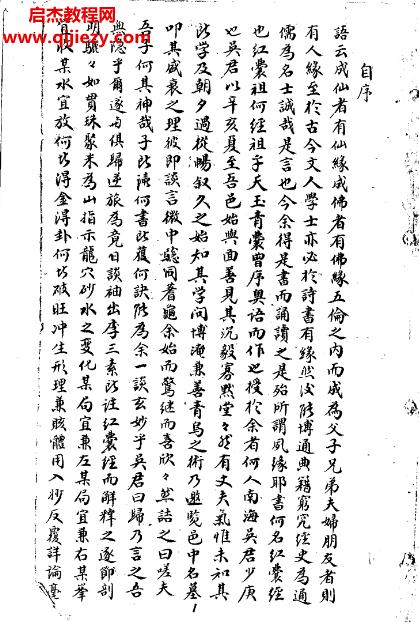 启杰教学网
qijiejiaoxue.com
自序
語云成仙者有仙緣成佛者有佛緣五倫之內而成為父子兄弟夫婦朋友者則
有人緣至於古今文人學士亦必於詩書有緣然後能博通典籍窮究經史為通
儒為名士誠哉是言也今余得是書而誦讀之是殆所謂夙緣耶書何名紅囊經
也紅囊祖何經祖乎天玉青囊曾序奧語而作也授於余者何人南海吳君少庚
也吳君以辛亥夏至吾邑始與面善見其沉毅寡默堂々然有丈夫氣雅未知其
於此學及朝夕過從暢叙久之始知其學問博淹兼善青烏之術乃遊覧邑中名墓
叩其盛衰之理彼即談言微中驗同蓍龜余始而驚継而喜欣々然詰之曰嗟夫
吾子何其神哉子所讀何書所獲何訣能為余一談玄妙乎吳君曰歸乃言之吾
與隐乎爾遂与俱歸逆旅為竟日談袖出李三素所註紅囊經而解釋之逐節剖
明驪々如貫珠聚米為山指示龍穴砂水之变化某局宜兼左某局宜兼右某峯
宜收某水宜放何以得金得卦何以破旺冲生形理兼賅體用入妙反覆詳論臺
1